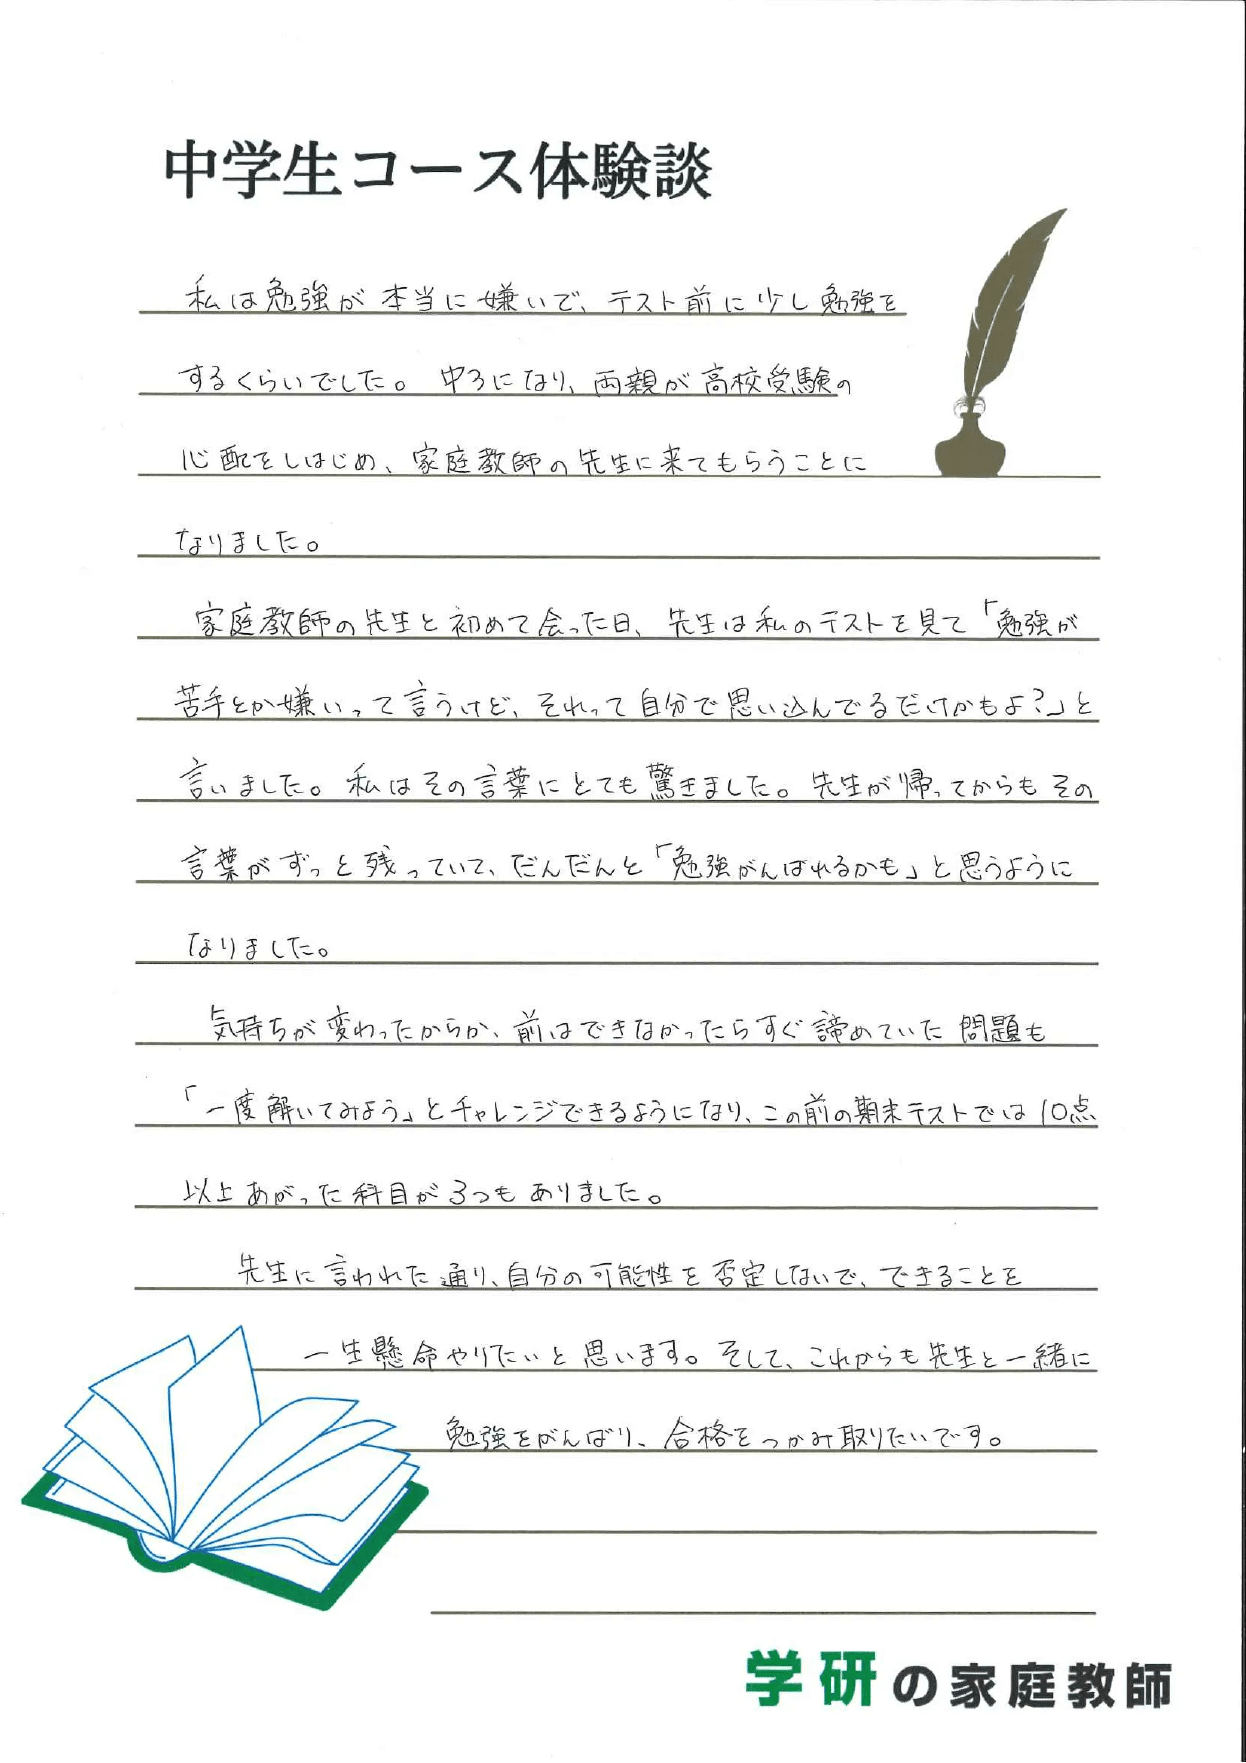 中学生コース体験談
私は勉強が本当に嫌いで、テスト前に少し勉強を
するくらいでした。中3になり、両親が高校受験の
心配をしはじめ、家庭教師の先生に来てもらうことに
なりました。
家庭教師の先生と初めて会った日、先生は私のテストを見て「勉強が
苦手とか嫌いって言うけど、それって自分で思い込んでるだけかもよ?」と
言いました。私はその言葉にとても驚きました。先生が帰ってからもその
言葉がずっと残っていて、だんだんと「勉強がんばれるかも」と思うように
なりました。
気持ちが変わったからか、前はできなかったらすぐ諦めていた問題も
「一度解いてみよう」とチャレンジできるようになり、この前の期末テストでは10点
以上あがった科目が3つもありました。
先生に言われた通り、自分の可能性を否定しないで、できることを
一生懸命やりたいと思います。そして、これからも先生と一緒に
勉強をがんばり、合格をつかみ取りたいです。
学研の家庭教師